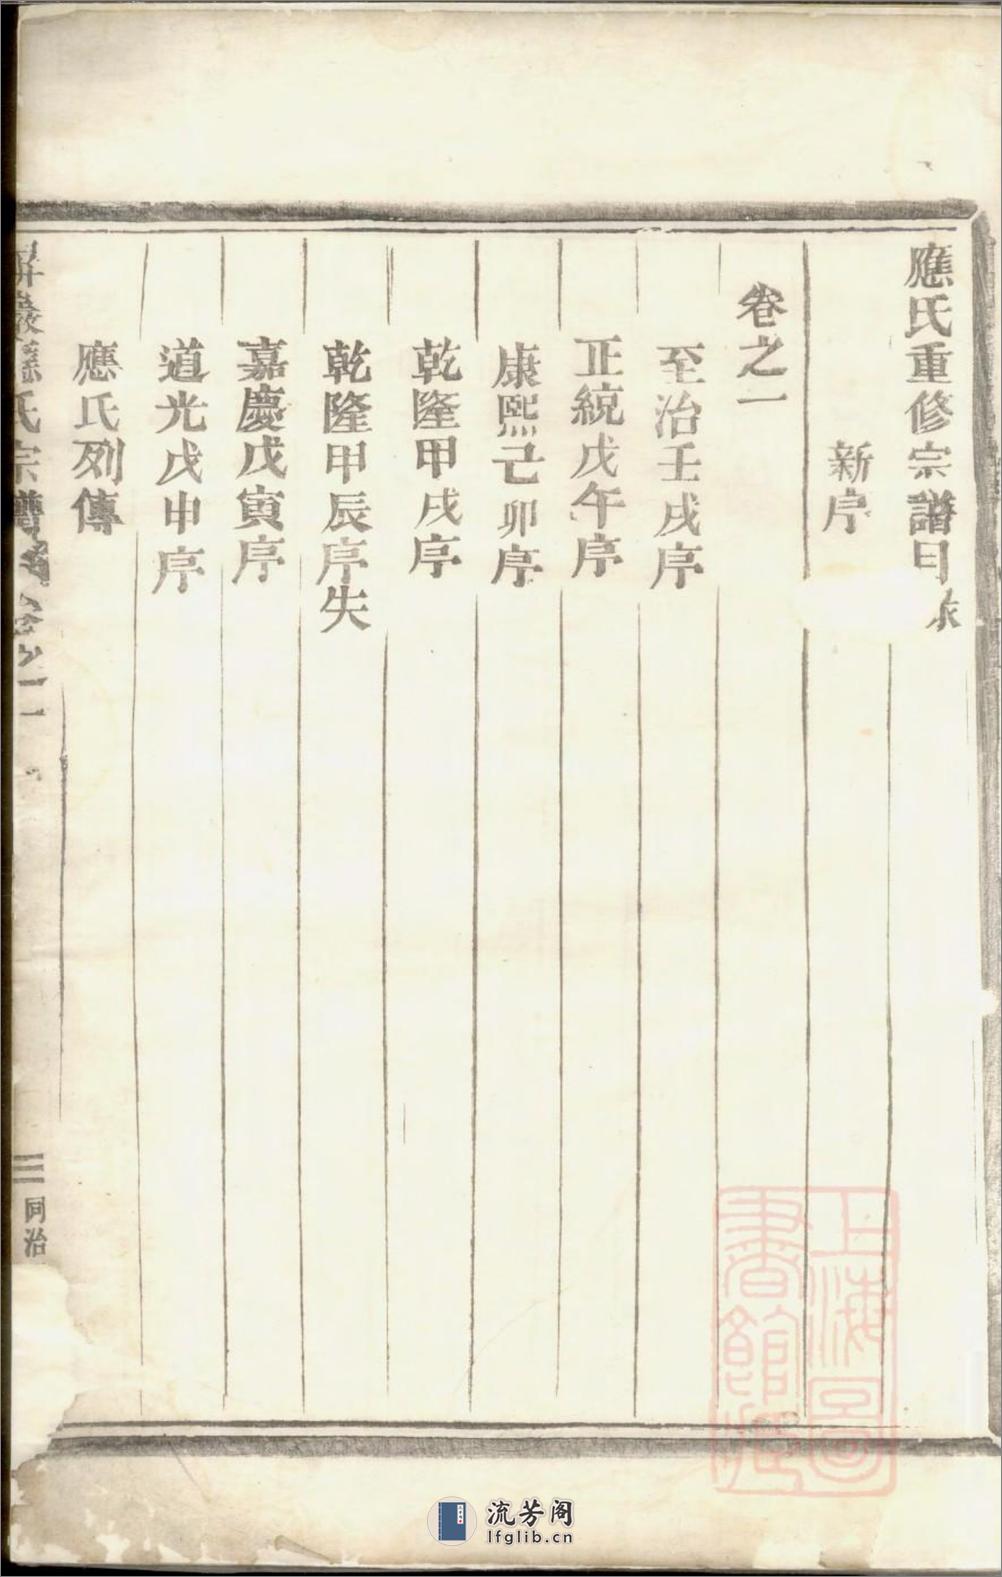 應氏重修宗譜目录
新序
卷之一
至治壬戌序
正統戊午序
康熙己卯序
乾隆甲戌序
乾隆甲辰序失
嘉慶戊寅序
道光戊申序
應氏列傳
屏巖應氏宗譜 卷之一
三 同治
上海圖書館藏
流芳阁
lfglib.cn